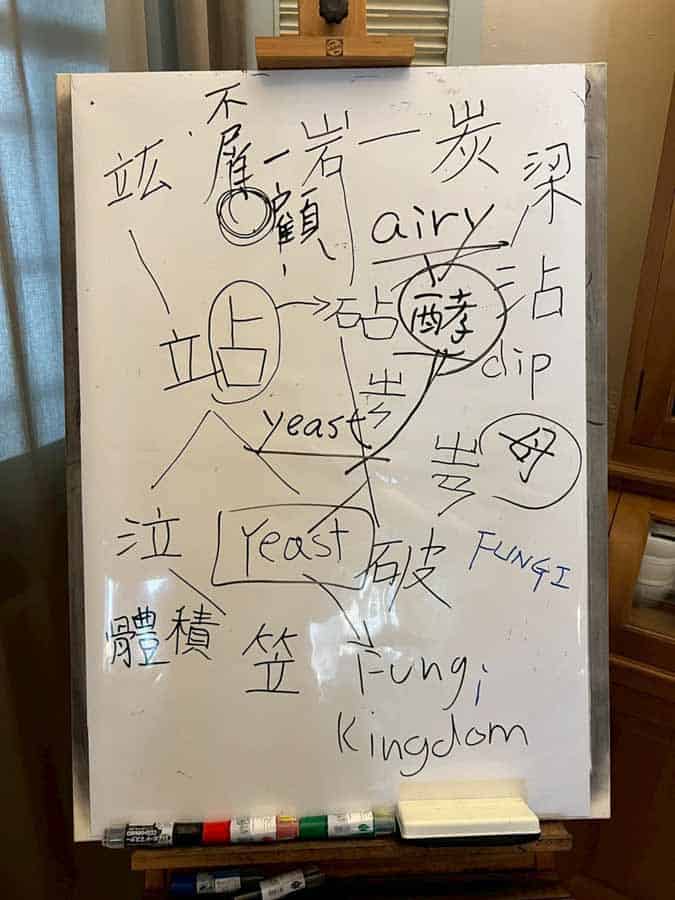 竑 不雇一岩一炭 梁
顧
airy
站 → 砧 酵 沾
dip
yeast
母
泣 Yeast 破 FUNGI
體積 笠 Fungi
Kingdom